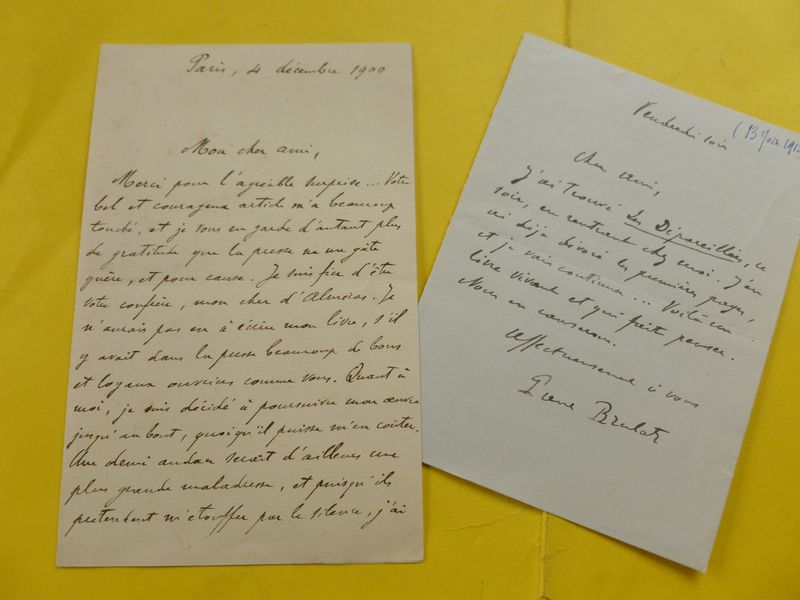 Paris, 4 décembre 1900
Mon cher ami,
Merci pour l'agréable surprise... Votre
bel et courageux article m'a beaucoup
touché, et je vous en garde d'autant plus
de gratitude que la presse ne me gâte
guère, et pour cause. Je suis fier d'être
votre confrère, mon cher d'Alméras. Je
n'aurais pas eu à écrire mon livre, s'il
y avait dans la presse beaucoup de bons
et loyaux ouvriers comme vous. Quant à
moi, je suis décidé à poursuivre mon œuvre
jusqu'au bout, quoiqu'il puisse m'en coûter.
Une demi audace serait d'ailleurs une
plus grande maladresse, et puisqu'ils
prétendent m'étouffer par le silence, j'ai
Vendredi soir
(13 Juin 191
Cher ami,
J'ai trouvé Les Dépareillées, ce
soir, en rentrant chez moi. J'en
ai déjà dévoré les premières pages,
et je vais continuer... Voilà un
livre vivant et qui fait penser.
Nous en causerons.
Affectueusement à vous
Paul Brulat